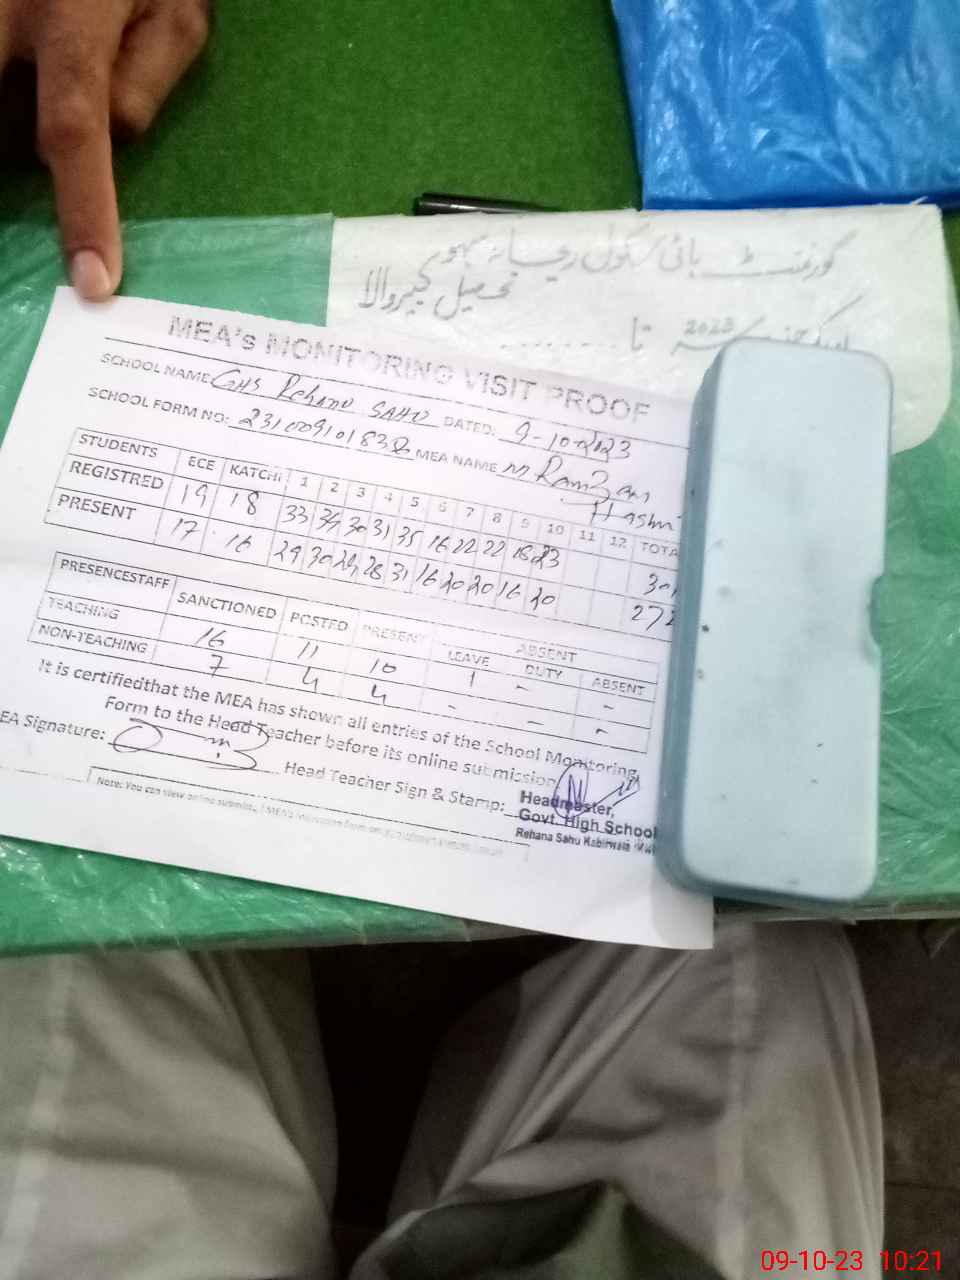 گورنمنٹ ہائی سکول ریحانہ سہو
تحصیل کبیروالا
2023 تا ........
MEA's MONITORING VISIT PROOF
SCHOOL NAME: GHS Rehana SAHU DATED: 9-10-2023
SCHOOL FORM NO: MEA NAME M Ramzan Hashmi
STUDENTS ECE KATCHI 1 2 3 4 5 6 7 8 9 10 11 12 TOTA
REGISTRED 19 18 33 34 30 31 35 16 22 22 18 23 301
PRESENT 17 16 29 30 29 28 31 16 20 20 16 20 272
PRESENCESTAFF SANCTIONED POSTED PRESENT ABSENT
LEAVE DUTY ABSENT
TEACHING 16 11 10 1 - -
NON-TEACHING 7 4 4 - - -
It is certifiedthat the MEA has shown all entries of the School Monitoring
Form to the Head Teacher before its online submission
EA Signature: Head Teacher Sign & Stamp:
Headmaster,
Govt. High School
Rehana Sahu Kabirwala
Note: You can view online
09-10-23 10:21